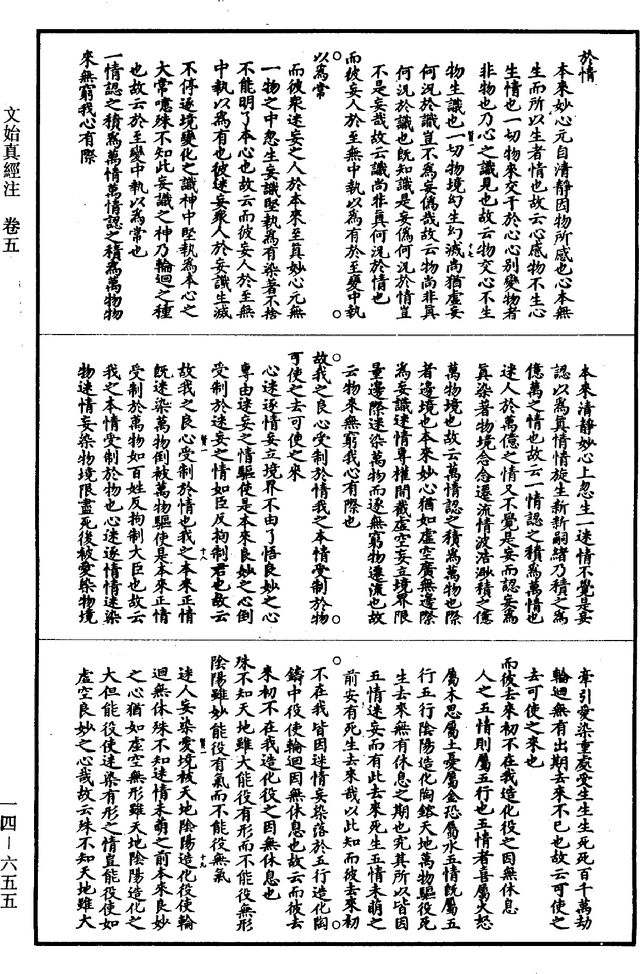 於情
本來妙心元自清靜因物所感也心本無
生而所以生者情也故云心感物不生心
生情也一切物來交干於心心別變物者
非物也乃心之識見也故云物交心不生
物生識也一切物境幻生幻滅尚猶虛妄
何況於識豈不爲妄僞哉故云物尚非眞
何況於識也旣知識是妄僞何況於情豈
不是妄哉故云識尚非眞何況於情也
而彼妄人於至無中執以爲有於至變中執
以爲常
而彼衆迷妄之人於本來至眞妙心元無
一物之中忽生妄識堅執爲有染著不捨
不能明了本心也故云而彼妄人於至無
中執以爲有也彼迷妄衆人於妄識生滅
不停逐境變化之識神中堅執爲本心之
大常噫殊不知此妄識之神乃輪迴之種
也故云於至變中執以爲常也
一情認之積爲萬情萬情認之積爲萬物物
來無窮我心有際
本來清靜妙心上忽生一迷情不覺是妄
認以爲眞情情旋生新新嗣緒乃積之爲
億萬之情也故云一情認之積爲萬情也
迷人於萬億之情又不覺是妄而認妄爲
眞染著物境念念遷流情波浩渺積之億
萬物境也故云萬情認之積爲萬物也際
者邊境也本來妙心猶如虛空廣無邊際
爲妄識迷情專權間截虛空妄立境界限
量邊際迷染萬物而逐無窮物遷流也故
云物來無窮我心有際也
故我之良心受制於情我之本情受制於物
可使之去可使之來
心迷逐情妄立境界不由了悟良妙之心
專由迷妄之情驅使是本來良妙之心倒
受制於迷妄之情如臣反拘制君也故云
故我之良心受制於情也我之本來正情
旣迷染萬物倒被萬物驅使是本來正情
受制於萬物如百姓反拘制大臣也故云
我之本情受制於物也心迷逐情情迷染
物迷情妄染物境限盡死後被愛染物境
牽引愛染重處受生生生死死百千萬劫
輪迴無有出期去來不已也故云可使之
去可使之來也
而彼去來初不在我造化役之因無休息
人之五情則屬五行也五情者喜屬火怒
屬木思屬土憂屬金恐屬水五情旣屬五
行五行陰陽造化陶鎔天地萬物驅役死
生去來無有休息之期也究其所以皆因
五情迷妄而有此去來死生五情未萌之
前安有死生去來哉以此知而彼去來初
不在我皆因迷情妄染落於五行造化陶
鑄中役使輪迴因無休息也故云而彼去
來初不在我造化役之因無休息也
殊不知天地雖大能役有形而不能役無形
陰陽雖妙能役有氣而不能役無氣
迷人妄染愛境被天地陰陽造化役使輪
迴無休殊不知迷情未萌之前本來良妙
之心猶如虛空無形雖天地陰陽造化之
大但能役使迷染有形之情豈能役使如
虛空良妙之心哉故云殊不知天地雖大
文始真經注　卷五
一四－六五五